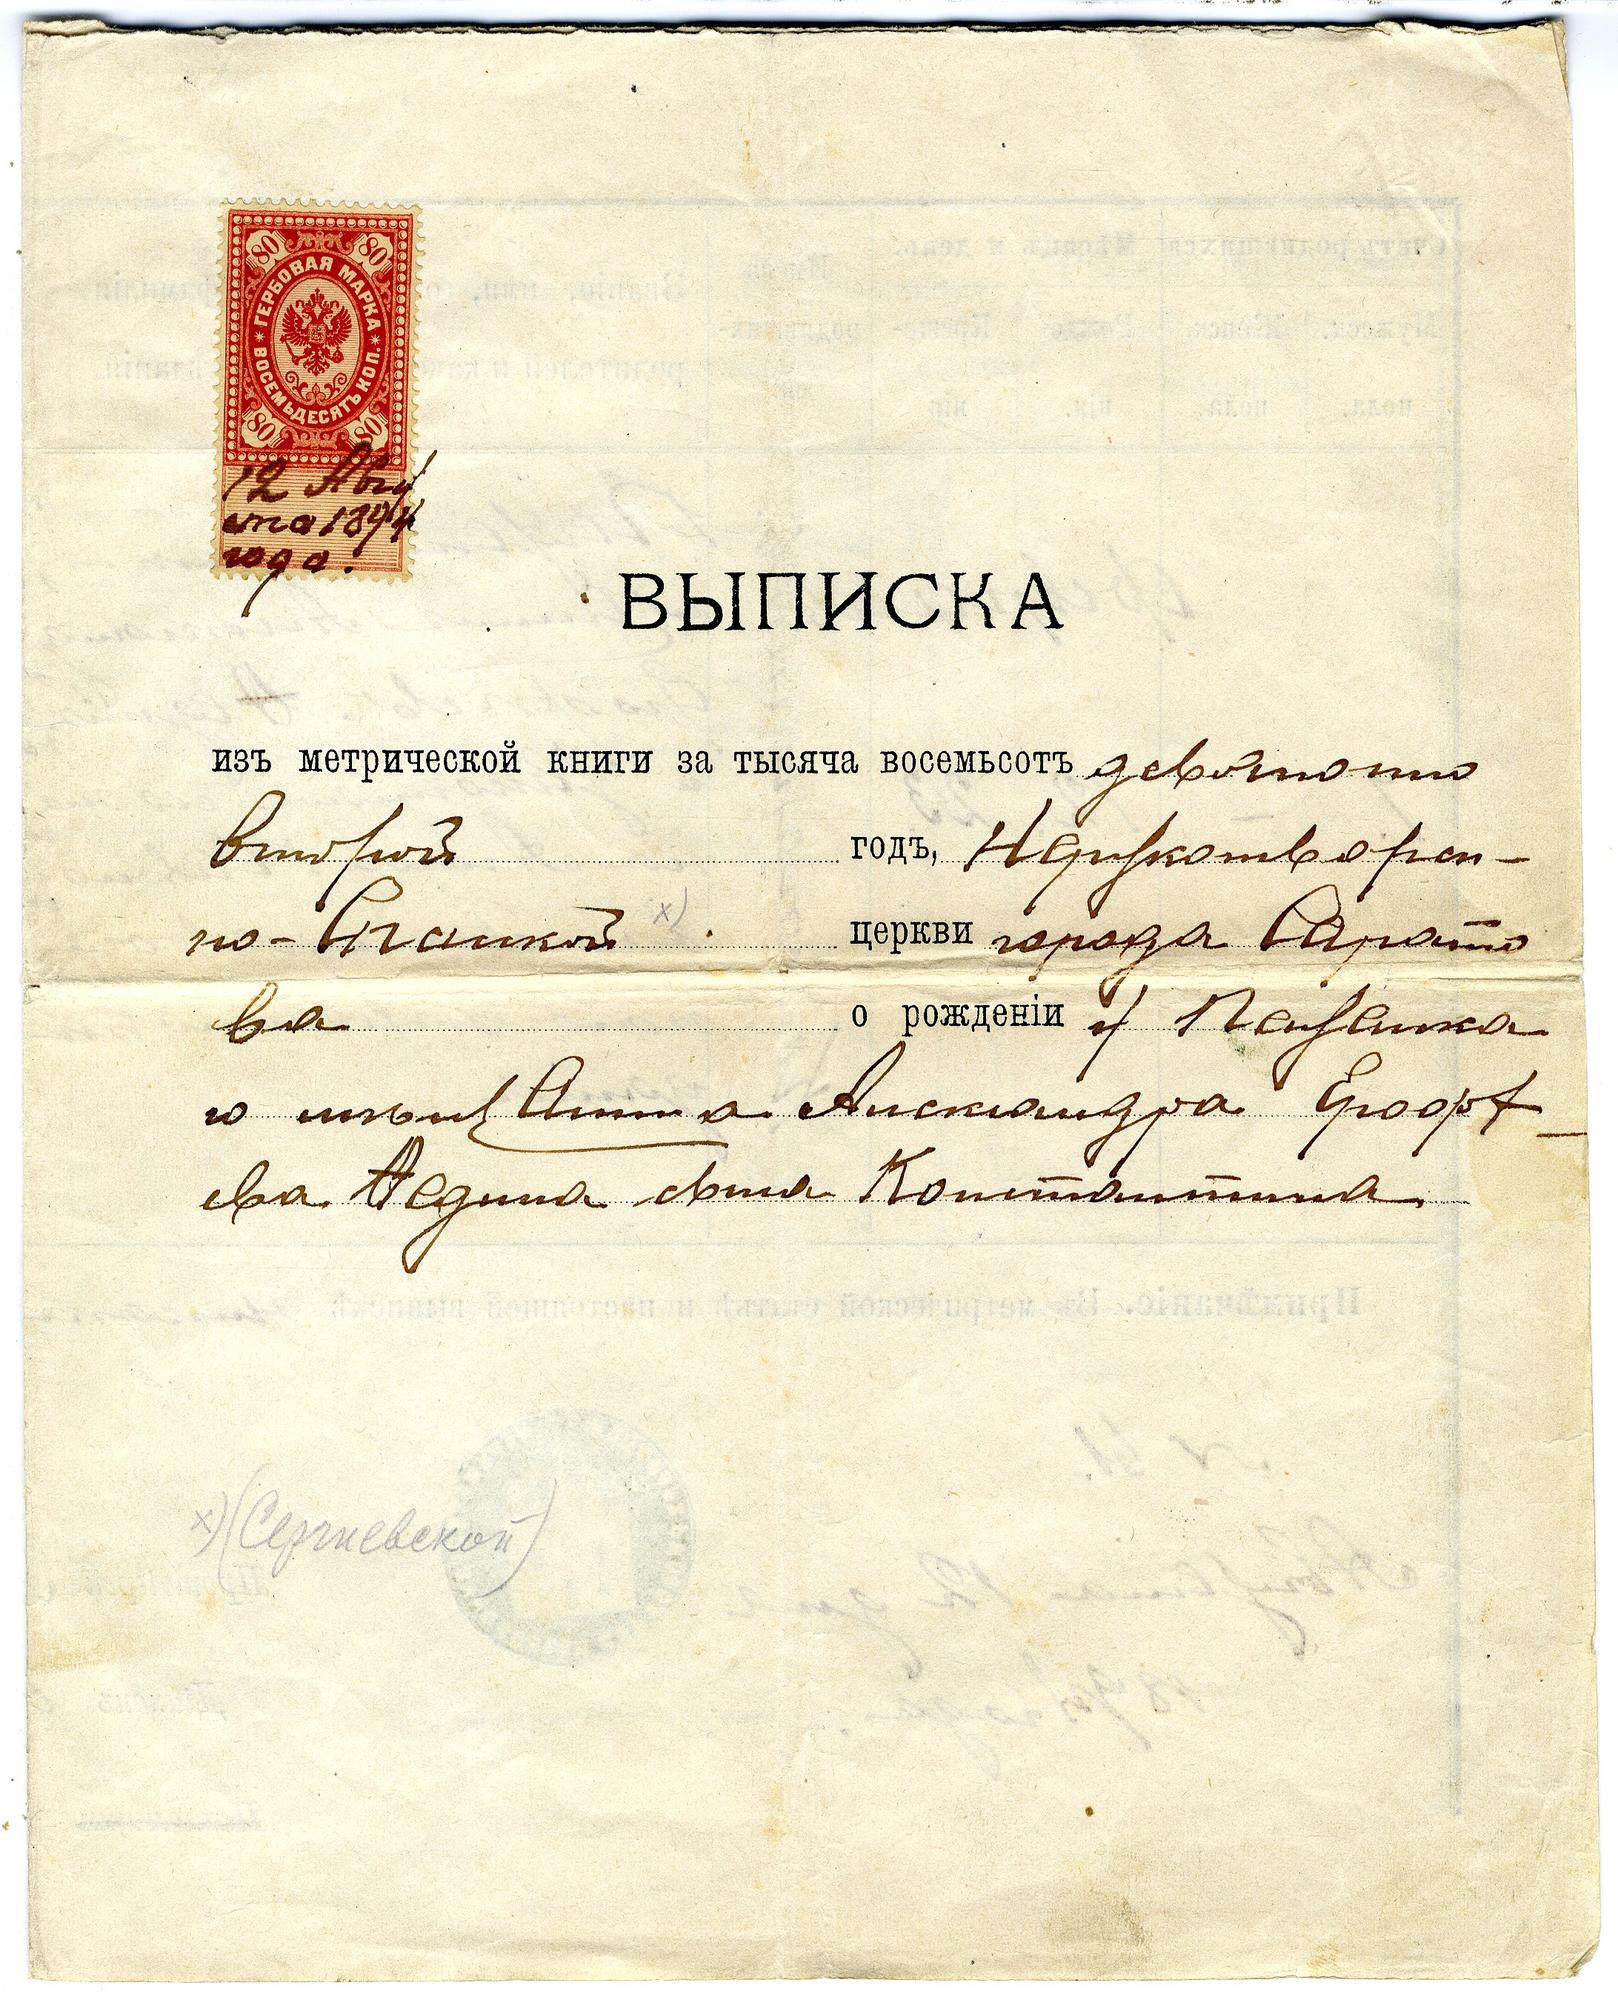 80 80
ГЕРБОВАЯ МАРКА
ВОСЕМЬДЕСЯТЪ КОП.
80 80
12 Авгу
ста 1894
года.
ВЫПИСКА
изъ метрической книги за тысяча восемьсотъ девяносто
второй годъ, Нерукотворен-
но-Спасской х) церкви города Сарато
ва о рожденіи у
Александра
Федина сына Константина
х) (Сергиевской)